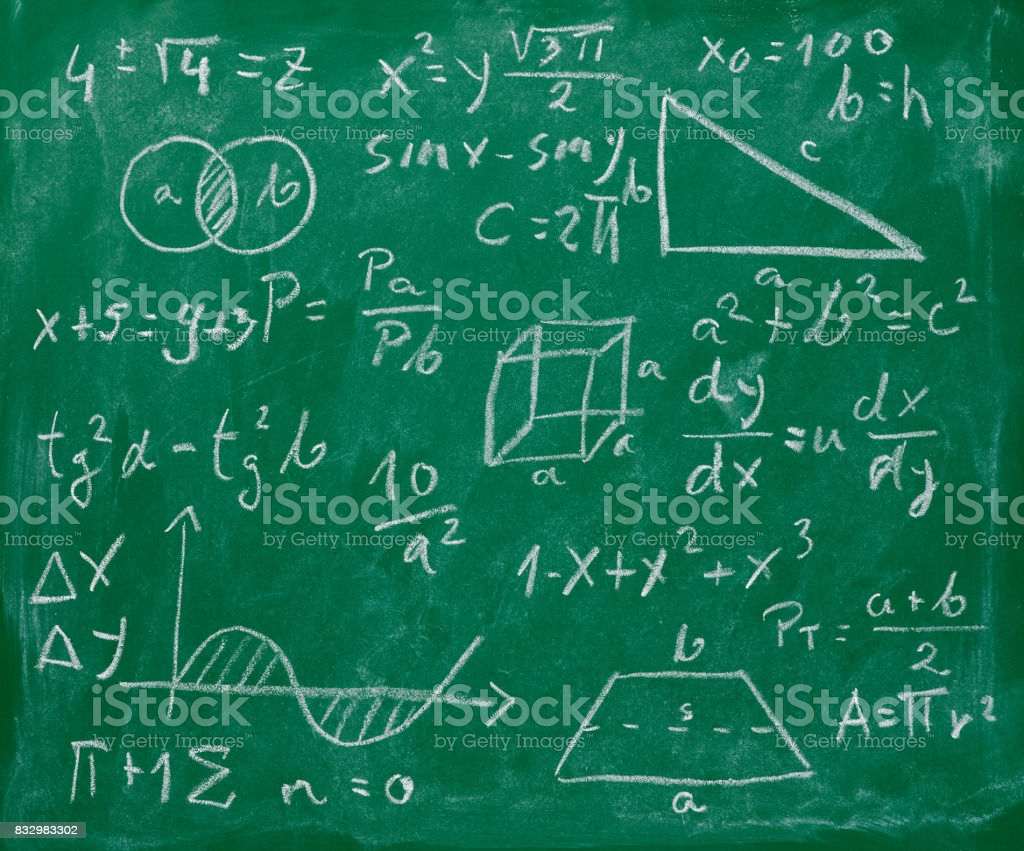 4 ± √4 = z
x² = y √3π / 2
x₀ = 100
b = h
a b
sin x - sin y
C = 2π
b c
a
x + 5 = y + 3
P = Pa / Pb
a² + b² = c²
a
a
a
dy / dx = u dx / dy
tg² α - tg² b
10 / a²
1 - x + x² + x³
Δ x
Δ y
P_T = a + b / 2
b
s
a
A = π r²
Π + 1 Σ n = 0
iStock
by Getty Images™
832983302